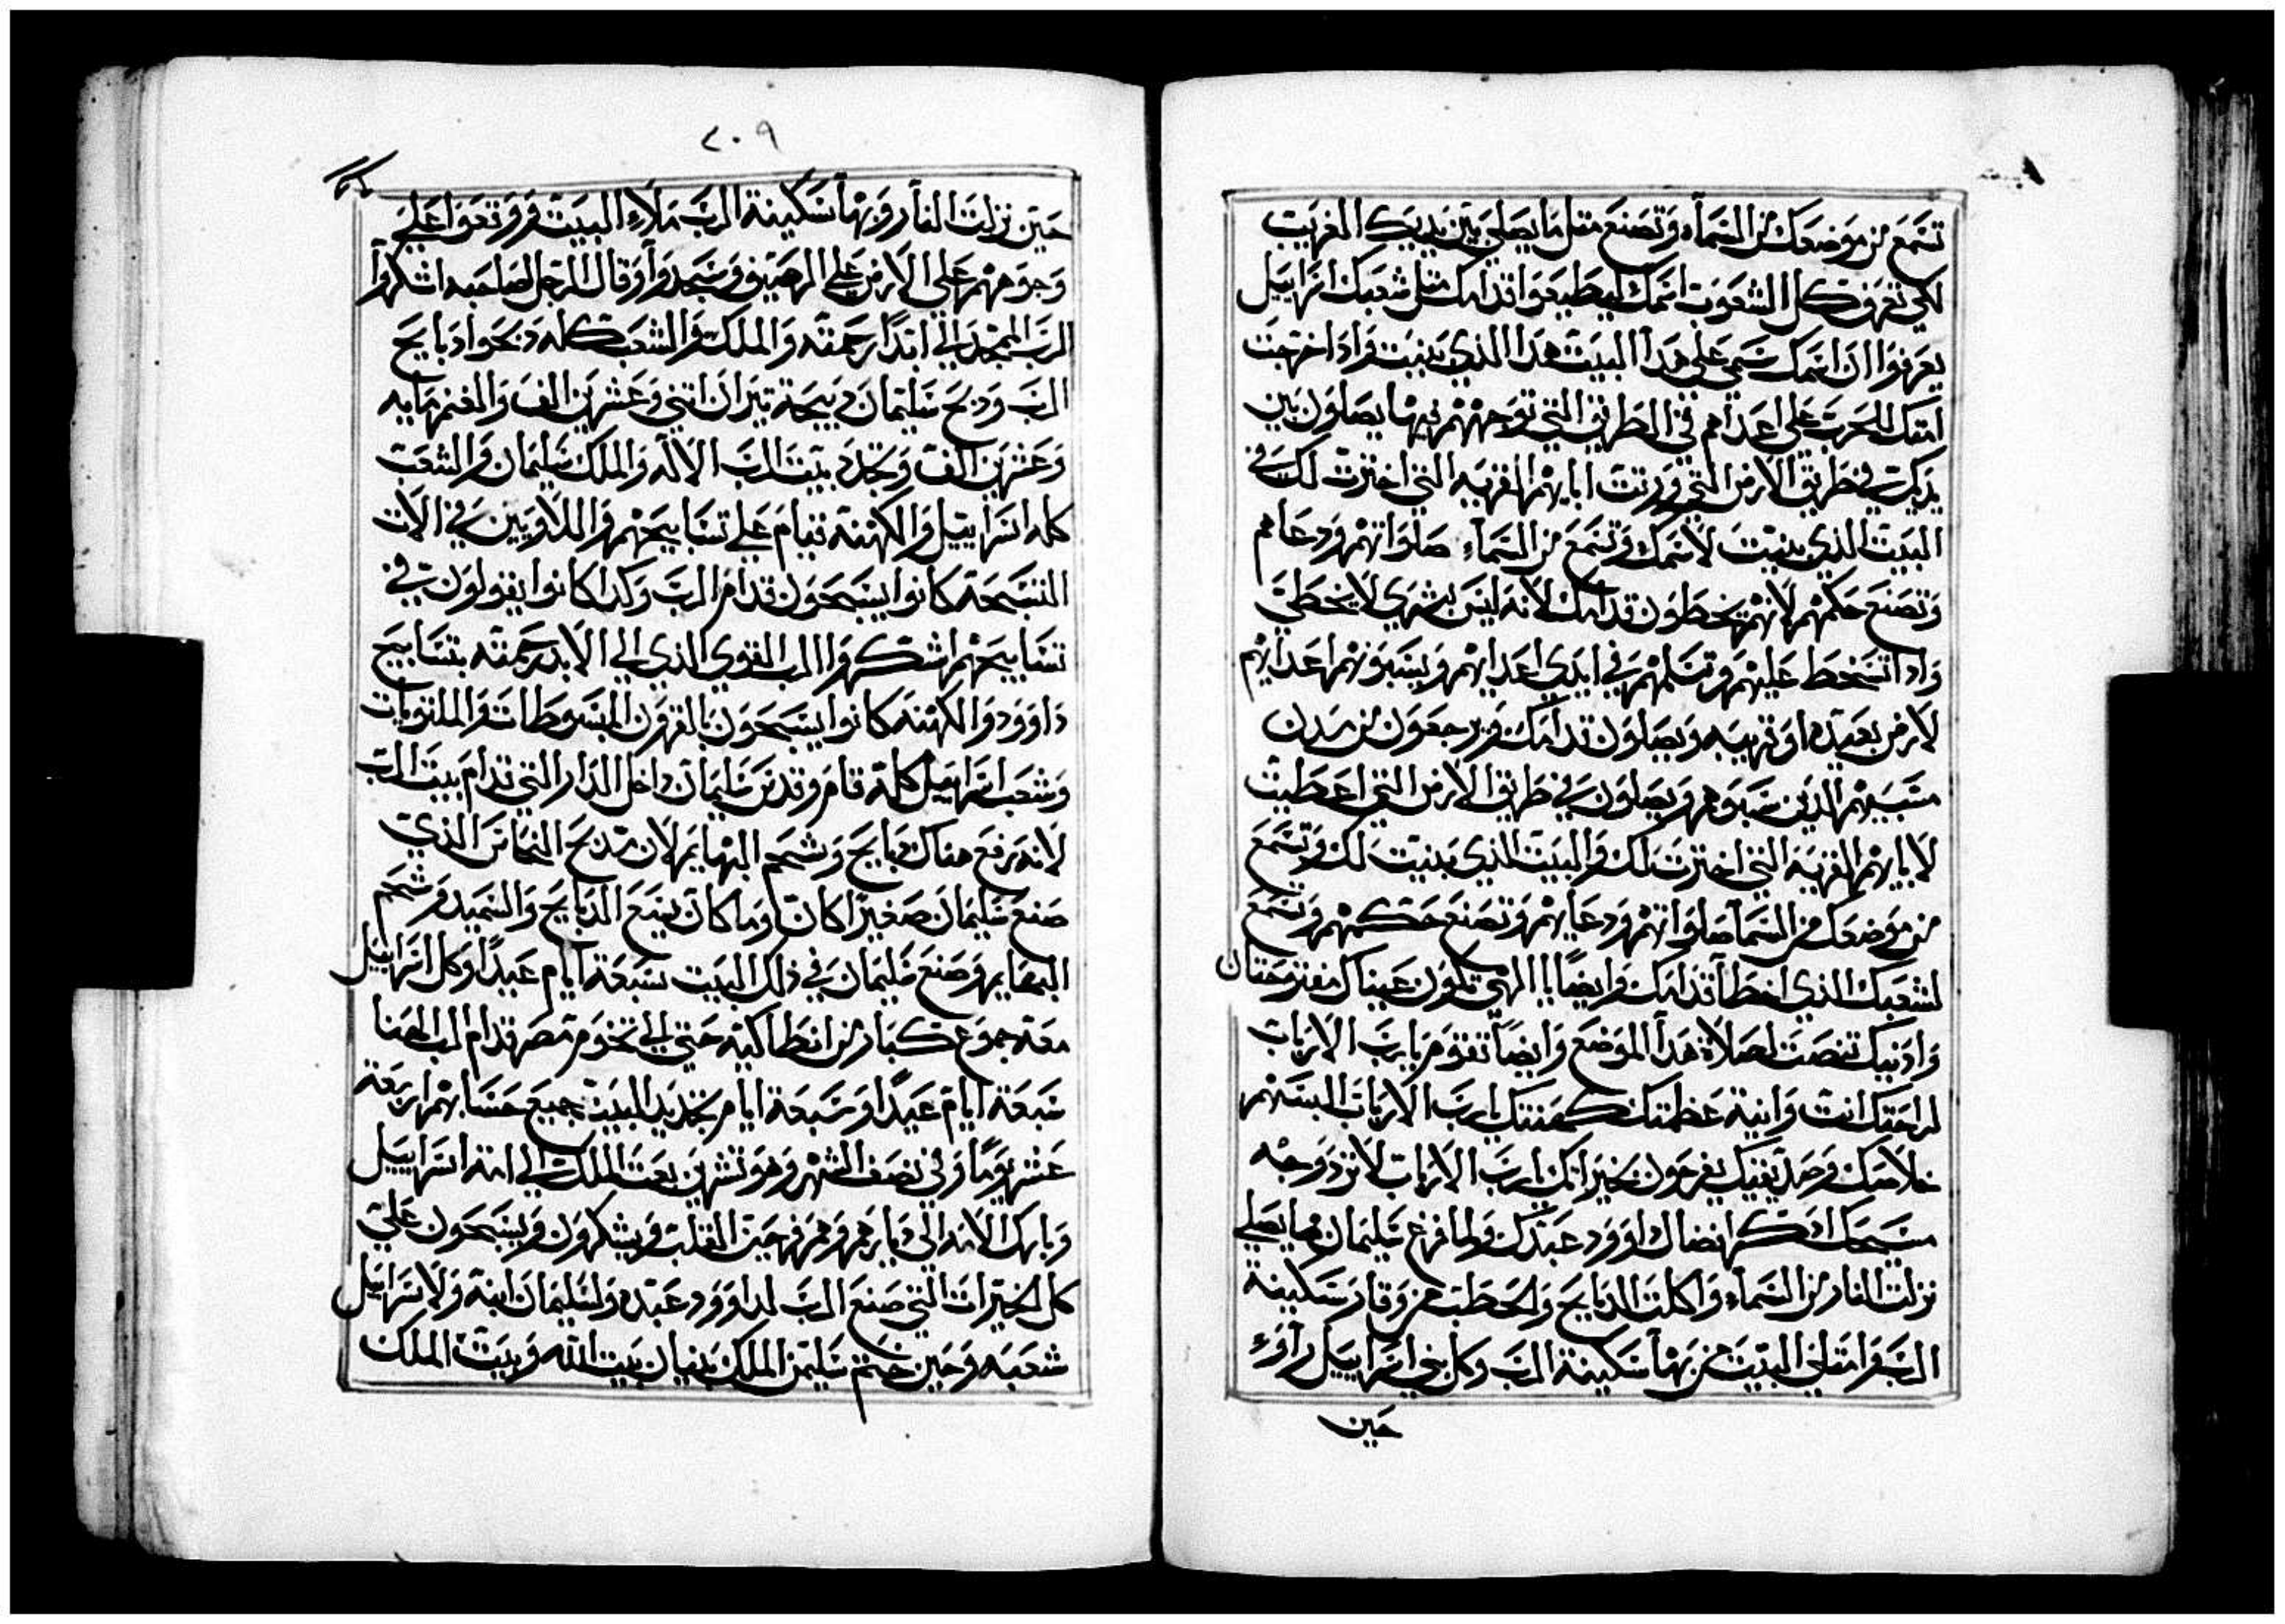 تسمع من موضعك من السمآء وتصنع مثل ما يصلي بين يديك الغريب
لكي تعرف كل الشعوب اسمك ليطيعوا قدامك مثل شعبك اسراييل
يعرفوا ان اسمك سمي علي هدا البيت هدا الذي بنيت واداخرجت
امتك للحرب علي اعداهم في الطريق التي توجههم فيها يصلون بين
يديك في طريق الارض التي ورتت ابايهم القريه التي اخترت لك في
البيت الذي بنيت لاسمك وتسمع من السمآء صلواتهم ودعاهم
وتصنع حكمهم لانهم يخطون قدامك لانه ليس بشري لا يخطي
وادا تسخط عليهم وتسلمهم في ايدي اعدايهم ويسبونهم اعدايهم
لارض بعيده او قريبه ويصلون قدامك ويرجعون من مدن
مسبيهم الدين سبوهم ويصلون في طريق الارض التي اعطيت
لابايهم القريه التي اخترت لك والبيت الذي بنيت لك وتسمع
من موضعك من السمآ صلواتهم ودعايهم وتصنع حكمهم وتسمع
لشعبك الذي اخطآ قدامك وايضًا يا الهي تكون عيناك مفتوحتان
وادنيك تنصت لصلاة هدا الموضع وايضاً تقوم يا رب الارباب
لراحتك انت وانية عظمتك كهنتك يا رب الارباب البسهم
خلاصك وصديقيك يفرحون بخيراتك يا رب الارباب لا ترد وجه
مسيحك ادكر افضال داوود عبدك ولما فرغ سليمان مما يصلي
نزلت النار من السمآء واكلت الدبايح والحطب من وقار سكينة
الرب وامتلي البيت من بهآ سكينة الرب وكل بني اسراييل رآوء
حين
٢٠٩
حين نزلت النار وبهآ سكينة الرب ملاء البيت ووقعوا علي
وجوههم علي الارض علي الرصيف وسجدوا وقال الرجل لصاحبه اشكروا
الرب الممجد الي ابدًا رحمته والملك والشعب كله دبحوا دبايح
الرب ودبح سليمان دبيحة تيران اتني وعشرين الف والغنم مايه
وعشرين الف وجدد بيت الرب الاله والملك سليمان والشعب
كله اسراييل والكهنه قيام علي تسابيحهم واللاويين في الات
التسبحة كانوا يسبحون قدام الرب وكدا كانوا يقولون في
تسابيحهم اشكروا الرب القوي الذي الي الابد رحمته بتسابيح
داوود والكهنه كانوا يسبحون بالقرون المبسوطات والملتويات
وشعب اسراييل كله قام وقدس سليمان داخل الدار التي قدام بيت الرب
لانه رفع هناك دبايح وشحم البهايم لان مدبح النحاس الذي
صنع سليمان صغيرًا كان وما كان يسع الدبايح والسميد وشحم
البهايم وصنع سليمان في ذلك البيت سبعة ايام عيدًا وكل اسراييل
معه جموع كبار من انطاكيه حتي الي تخوم مصر قدام الرب الهنا
سبعة ايام عيدًا وسبعة ايام تجديد البيت جميع حسابهم اربعة
عشر يومًا وفي نصف الشهر وهو تشرين بعت الملك الي امة اسراييل
وبارك الامه الي ديارهم وهم فرحين القلب ويشكرون ويسبحون علي
كل الخيرات التي صنع الرب لداوود عبده ولسليمان ابنه ولاسراييل
شعبه وحين ختم سليمن الملك بنيان بيت الله وبيت الملك